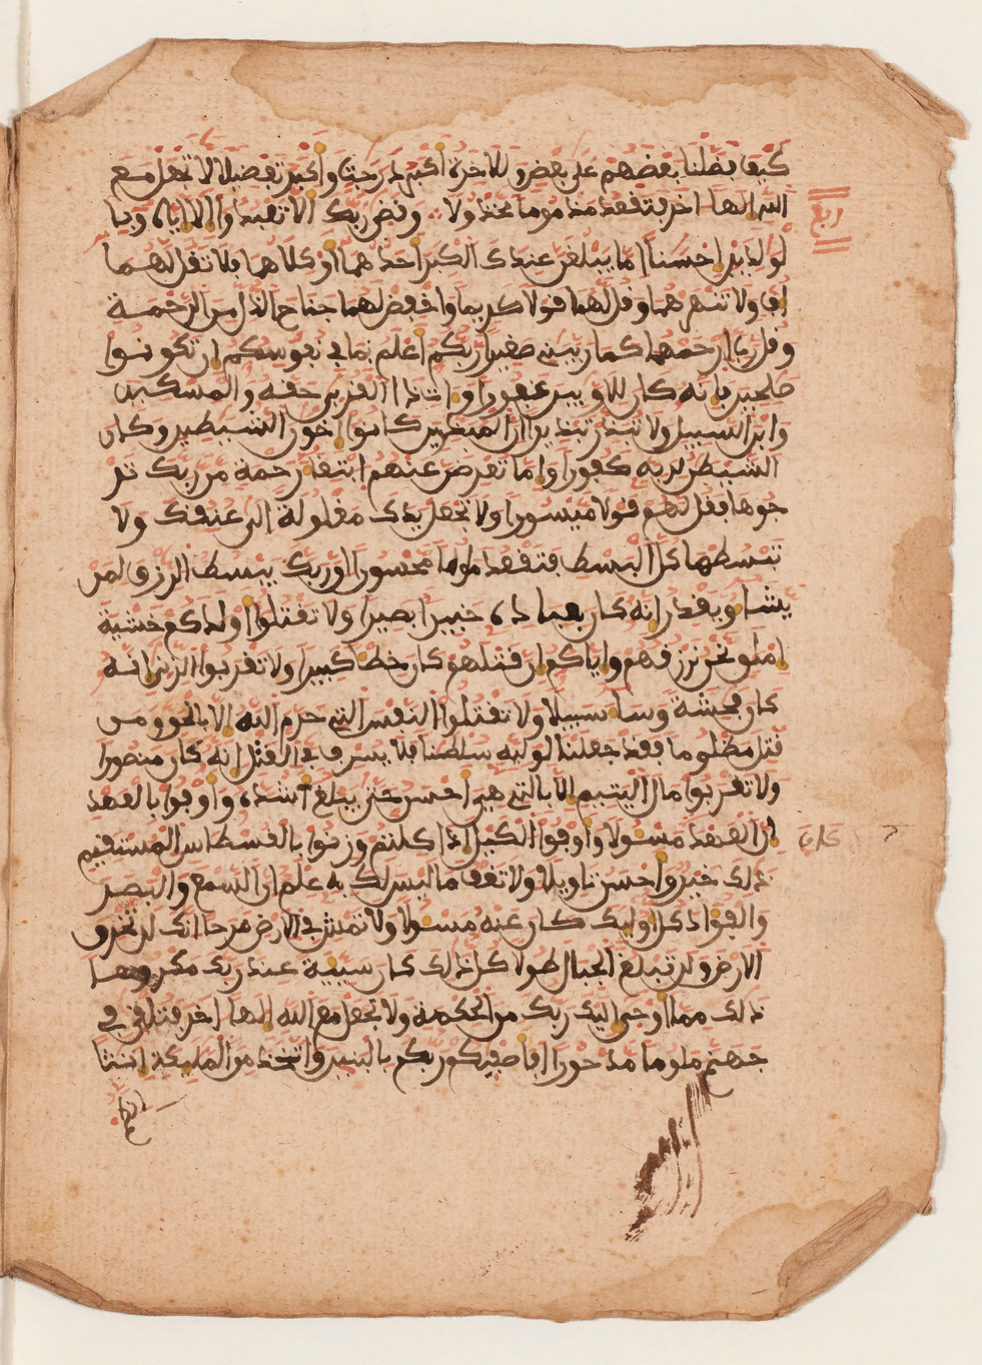 كيف فضلنا بعضهم على بعض وللاخرة اكبر درجت واكبر تفضيلا لا تجعل مع
الله الها اخر فتقعد مذموما مخذولا وقضى ربك الا تعبدوا الا اياه وبا
لولدين احسنا اما يبلغن عندك الكبر احدهما او كلاهما فلا تقل لهما
اف ولا تنهرهما وقل لهما قولا كريما واخفض لهما جناح الذل من الرحمة
وقل رب ارحمهما كما ربينى صغيرا ربكم اعلم بما في نفوسكم ان تكونوا
صلحين فانه كان للاوبين غفورا وات ذا القربى حقه والمسكين
وابن السبيل ولا تبذر تبذيرا ان المبذرين كانوا اخون الشيطين وكان
الشيطن لربه كفورا واما تعرضن عنهم ابتغا رحمة من ربك تر
جوها فقل لهم قولا ميسورا ولا تجعل يدك مغلولة الى عنقك ولا
تبسطها كل البسط فتقعد ملوما محسورا ان ربك يبسط الرزق لمن
يشا ويقدر انه كان بعباده خبيرا بصيرا ولا تقتلوا اولدكم خشية
املق نحن نرزقهم واياكم ان قتلهم كان خطا كبيرا ولا تقربوا الزنى انه
كان فحشة وسا سبيلا ولا تقتلوا النفس التى حرم الله الا بالحق ومن
قتل مظلوما فقد جعلنا لوليه سلطنا فلا يسرف في القتل انه كان منصورا
ولا تقربوا مال اليتيم الا بالتى هي احسن حتى يبلغ اشده واوفوا بالعهد
ان العهد كان مسولا واوفوا الكيل اذا كلتم وزنوا بالقسطاس المستقيم
ذلك خير واحسن تاويلا ولا تقف ما ليس لك به علم ان السمع والبصر
والفواد كل اوليك كان عنه مسولا ولا تمش في الارض مرحا انك لن تخرق
الارض ولن تبلغ الجبال طولا كل ذلك كان سيية عند ربك مكروها
ذلك مما اوحى اليك ربك من الحكمة ولا تجعل مع الله الها اخر فتلقى في
جهنم ملوما مدحورا افاصفيكم ربكم بالبنين واتخذ من المليكة انثا